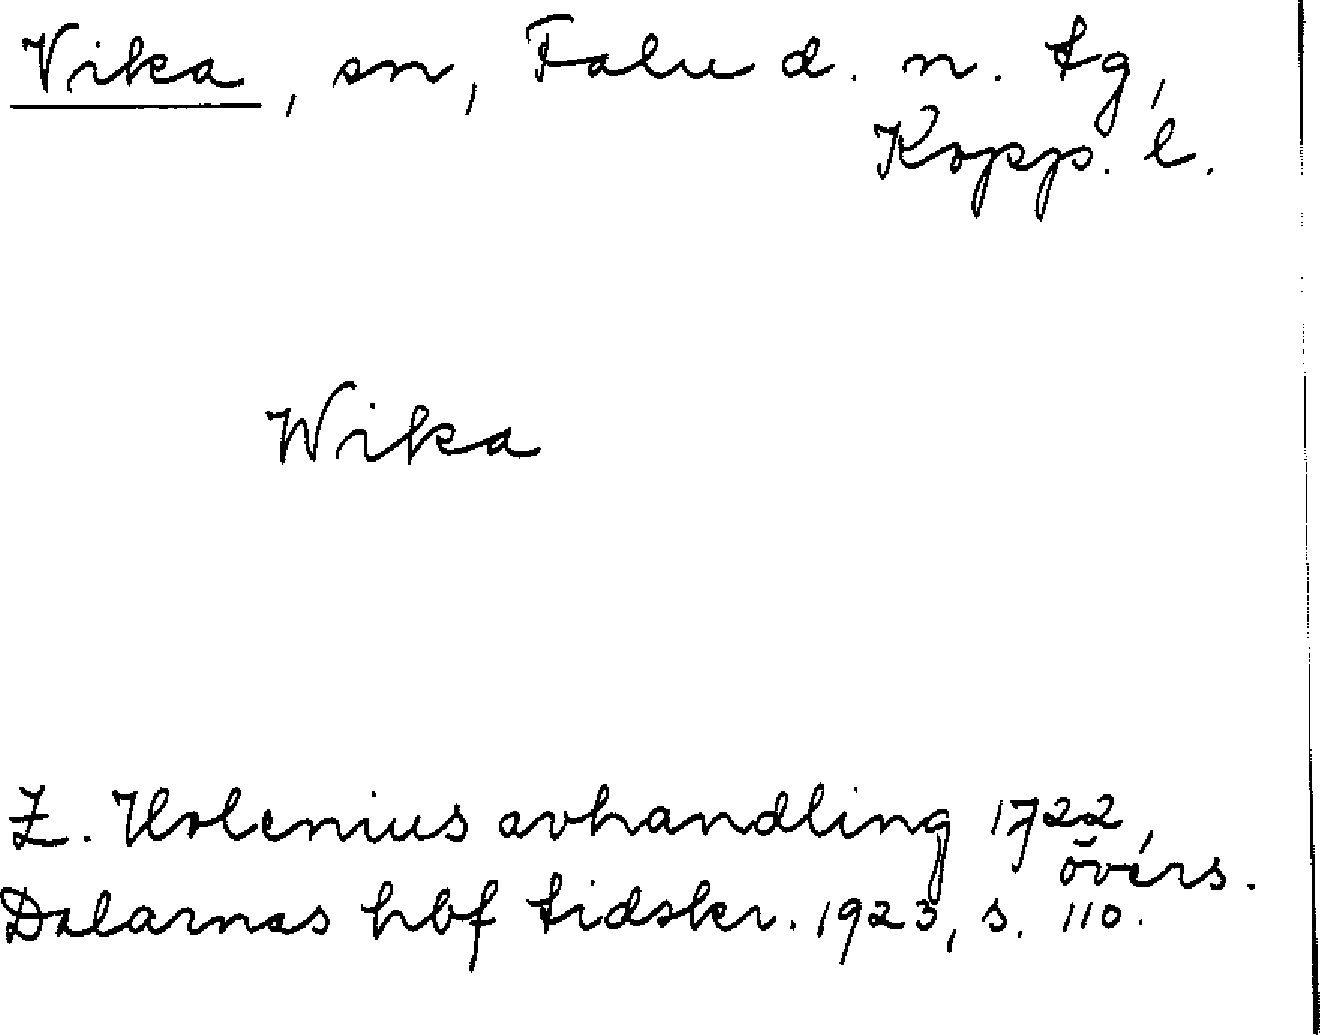 Vika, sn, Falu d. n. tg,
Kopp. l.
Wika
Z. Holenius avhandling 1722,
övers.
Dalarnas hbf tidskr. 1923, s. 110.